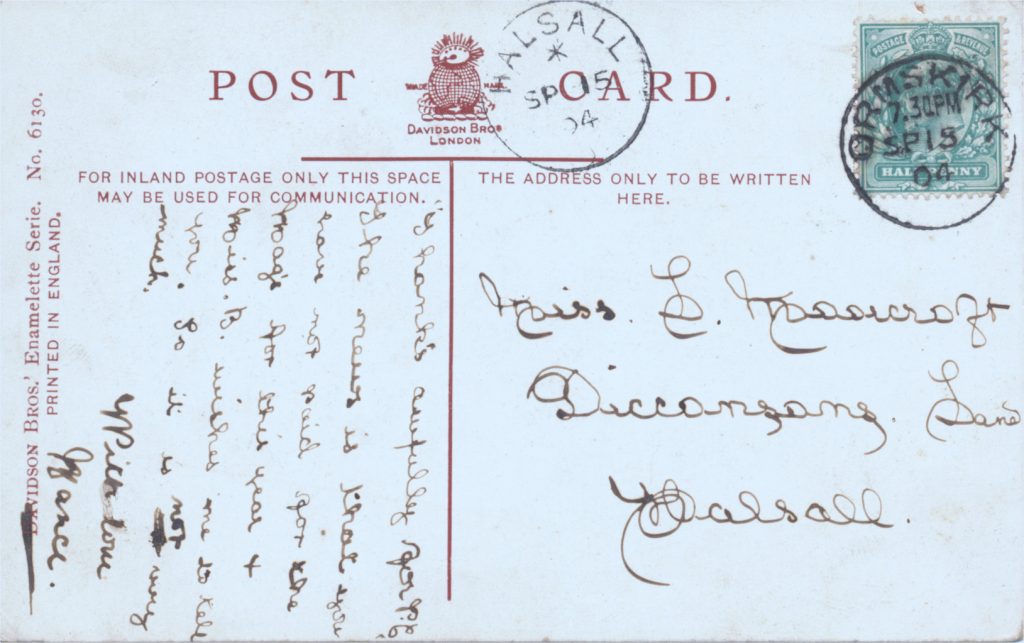 POST CARD.
TRADE MARK
DAVIDSON BROS
LONDON
HALSALL
SP 15
04
POSTAGE & REVENUE
HALFPENNY
ORMSKIRK
7.30PM
SP 15
04
FOR INLAND POSTAGE ONLY THIS SPACE
MAY BE USED FOR COMMUNICATION.
THE ADDRESS ONLY TO BE WRITTEN
HERE.
Thanks aufully for P.C
The news is that you
have not paid for the
Mag's for this year &
Miss. B. wishes me to tell
you. So it is not very
much.
With love
Nance.
Miss. L. Moorcroft
Diccongang. Land
Halsall.
DAVIDSON BROS.' Enamelette Serie. No. 6130.
PRINTED IN ENGLAND.